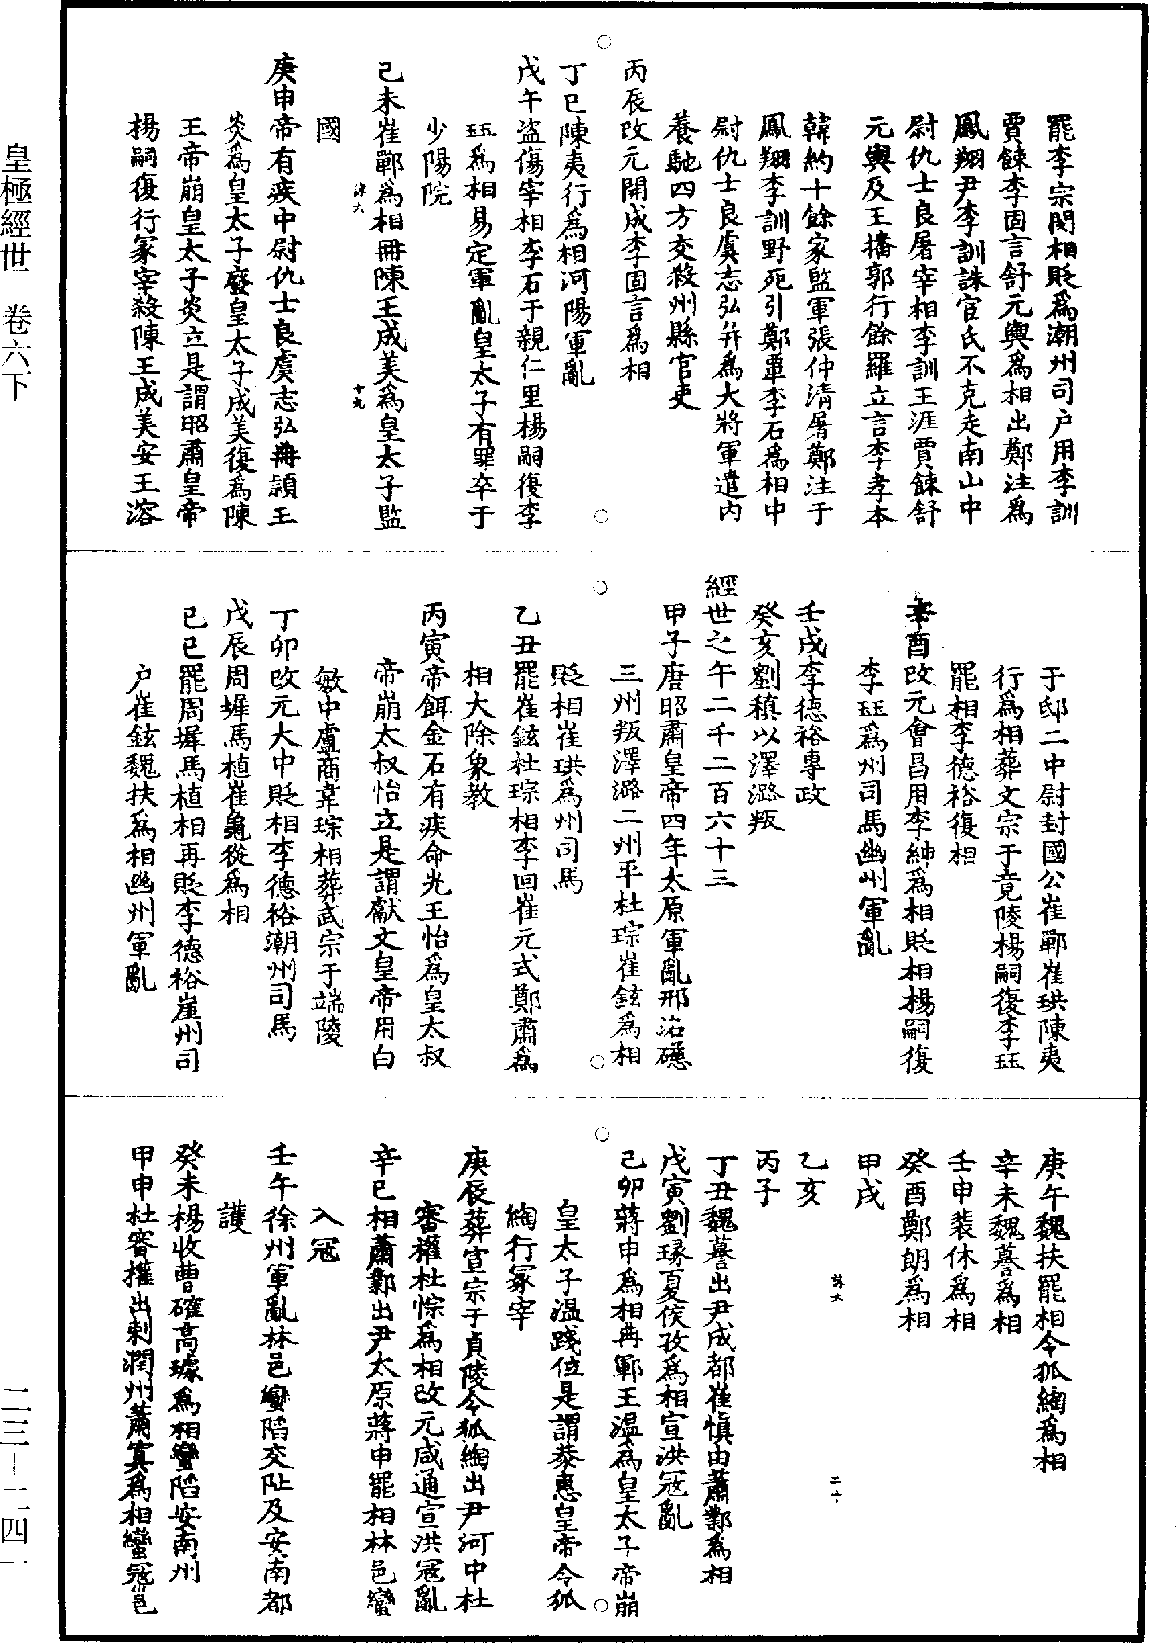 罷李宗閔相貶爲潮州司户用李訓
賈餗李固言舒元輿爲相出鄭注爲
鳳翔尹李訓誅宦氏不克走南山中
尉仇士良屠宰相李訓王涯賈餗舒
元輿及王播郭行餘羅立言李孝本
韓約十餘家監軍張仲清屠鄭注于
鳳翔李訓野死引鄭覃李石爲相中
尉仇士良虞志弘并爲大將軍遣内
養馳四方交殺州縣官吏
丙辰改元開成李固言爲相
丁巳陳夷行爲相河陽軍亂
戊午盗傷宰相李石于親仁里楊嗣復李
珏爲相易定軍亂皇太子有罪卒于
少陽院
己未崔鄲爲相冊陳王成美爲皇太子監
國
庚申帝有疾中尉仇士良虞志弘冊潁王
炎爲皇太子廢皇太子成美復爲陳
王帝崩皇太子炎立是謂昭肅皇帝
楊嗣復行冢宰殺陳王成美安王溶
于邸二中尉封國公崔鄲崔珙陳夷
行爲相葬文宗于竟陵楊嗣復李珏
罷相李德裕復相
辛酉改元會昌用李紳爲相貶相楊嗣復
李珏爲州司馬幽州軍亂
壬戌李德裕專政
癸亥劉稹以澤潞叛
經世之午二千二百六十三
甲子唐昭肅皇帝四年太原軍亂邢洺磁
三州叛澤潞二州平杜琮崔鉉爲相
貶相崔珙爲州司馬
乙丑罷崔鉉杜琮相李回崔元式鄭肅爲
相大除象教
丙寅帝餌金石有疾命光王怡爲皇太叔
帝崩太叔怡立是謂獻文皇帝用白
敏中盧商韋琮相葬武宗于端陵
丁卯改元大中貶相李德裕潮州司馬
戊辰周墀馬植崔龜從爲相
己巳罷周墀馬植相再貶李德裕崖州司
户崔鉉魏扶爲相幽州軍亂
庚午魏扶罷相令狐綯爲相
辛未魏謩爲相
壬申裴休爲相
癸酉鄭朗爲相
甲戌
乙亥
丙子
丁丑魏謩出尹成都崔慎由蕭鄴爲相
戊寅劉瑑夏侯孜爲相宣洪冦亂
己卯蔣申爲相冉鄆王温爲皇太子帝崩
皇太子温踐位是謂恭惠皇帝令狐
綯行冢宰
庚辰葬宣宗于貞陵令狐綯出尹河中杜
審權杜悰爲相改元咸通宣洪冦亂
辛巳相蕭鄴出尹太原蔣申罷相林邑蠻
入冦
壬午徐州軍亂林邑蠻陷交阯及安南都
護
癸未楊收曹確高璩爲相蠻陷安南州
甲申杜審權出刺潤州蕭寘爲相蠻冦邕
皇極經世 卷六下
二三—二四一